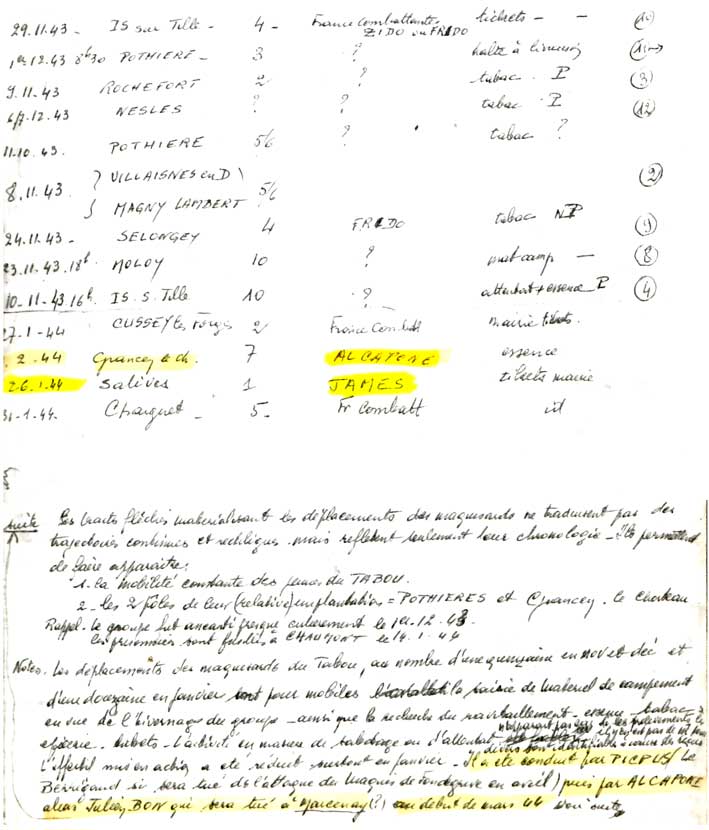 29.11.43 - IS sur Tille - 4 - France Combattante tickets - - (10)
ZIDO ou FRIDO
1er 12.43 8h30 POTHIERE - 3 ? halte à (11→)
9.11.43 ROCHEFORT 2 ? tabac . P (3)
6/7.12.43 NESLES ? ? tabac . P (12)
11.10.43. POTHIERE 5/6 ? tabac ?
8.11.43 } VILLAISNES en D \ (2)
} MAGNY LAMBERT 5/6
24.11.43 - SELONGEY 4 FRIDO tabac NP (9)
23.11.43.18h MOLOY 10 ? mat camp - (8)
10-11-43.16h IS.S. Tille 10 ? attentat + essence P (4)
27.1-44 CUSSEY les Forges 2 France Combatt mairie tickets.
2.44 Grancey le ch. 7 ALCAPONE essence
26.1.44 Salives 1 JAMES tickets mairie
31-1.44. Chargnet - 5 - Fr Combatt id
suite Les traits fléchés matérialisant les déplacements des maquisards ne traduisent pas des
trajectoires continues et rectilignes mais reflètent seulement leur chronologie - Ils permettent
de faire apparaître:
1. La mobilité constante des jeunes du TABOU.
2 - Les 2 pôles de leur (relative) implantation = POTHIERES et Grancey. le Chateau
Rappel. le groupe fut anéanti presque entièrement le 1er.12.43.
Les prisonniers sont fusillés à CHAUMONT le 14.1.44
Notes. Les déplacements des maquisards du Tabou, au nombre d'une quinzaine en nov et déc et
d'une douzaine en janvier sont pour mobiles la saisie de materiel de campement
en vue de l'hivernage du groupe - ainsi que la recherche du ravitaillement - essence - tabac -
épicerie - tickets - L'activité en matière de sabotage ou d'attentat
L'effectif mis en action a été réduit surtout en janvier - Il a été conduit par PICPUS (Le
Berrigaud si sera tué ds l'attaque des Maquis de en avril) puis par ALCAPONE
alias Julien BON qui sera tué à Marcenay (?) au début de mars 44 Voir suite